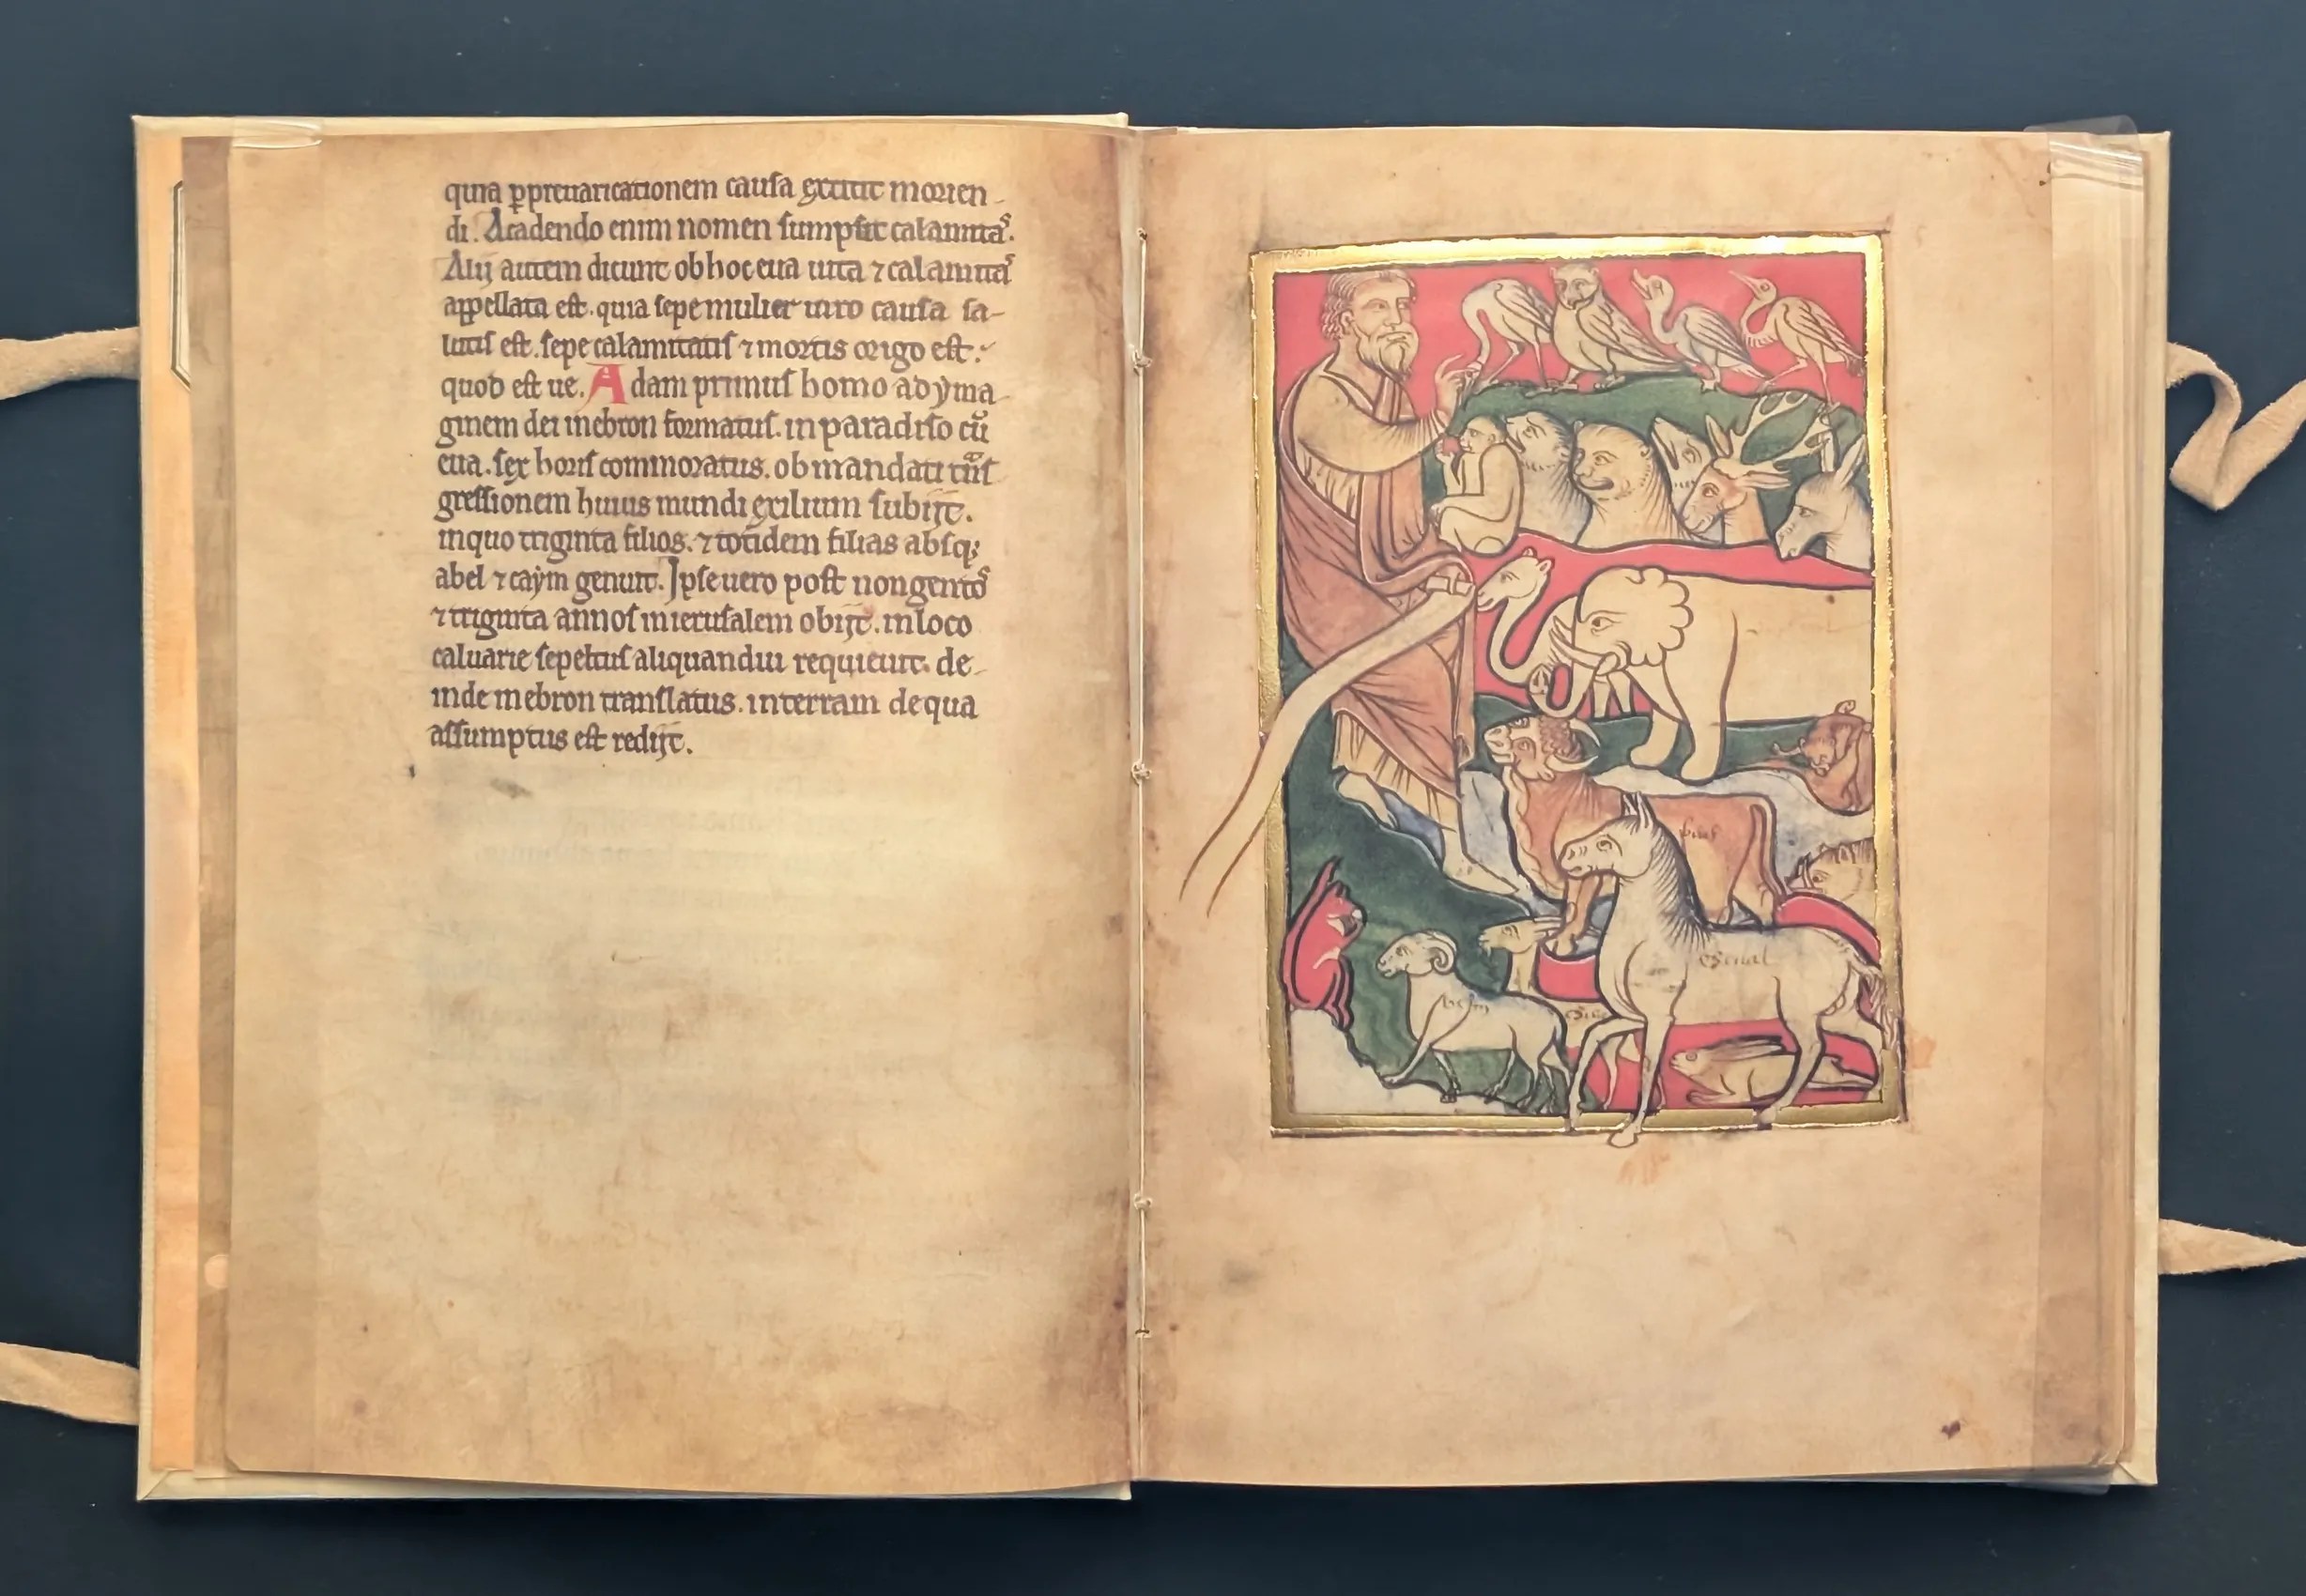 quia ꝑpreuaricationem cauſa extitit morien-
di. Acadendo enim nomen ſumpſit calamitaſ.
Alij autem dicunt ob hoc eua uita ⁊ calamitaſ
appellata eſt. quia ſepe mulier uiro cauſa ſa-
lutiſ eſt. ſepe calamitatiſ ⁊ mortis origo eſt.
quod eſt ue. Adam primuſ homo ad yma-
ginem dei inebron formatuſ. in paradiſo cū
eua. ſex horiſ commoratus. ob mandati tn̄ſ
greſſionem huius mundi exilium ſubijt.
inquo triginta filios. ⁊ totidem filias abſqꝫ
abel ⁊ caẏm genuit. Ipſe uero poſt nongentoſ
⁊ triginta annoſ in ieruſalem obijt. in loco
caluarie ſepeltuſ aliquandiu requieuit. de-
inde inebron tranſlatus. in terram de qua
aſſumptus eſt redijt.